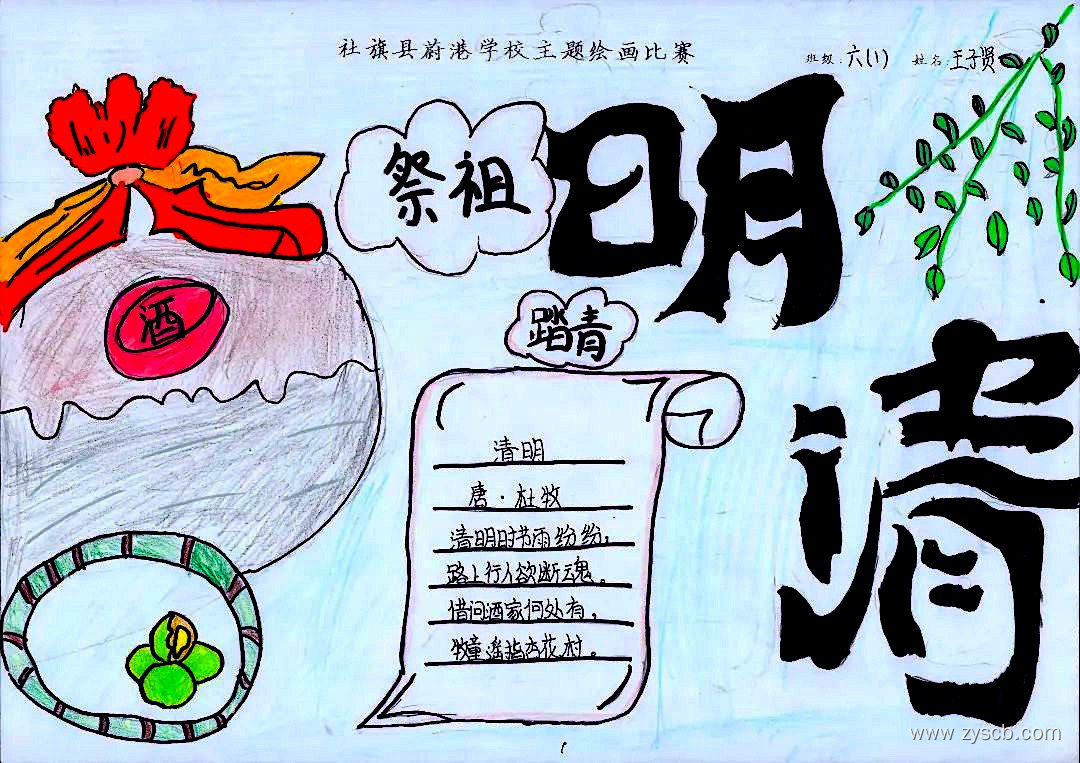 社旗县蔚港学校主题绘画比赛
班级:六(1) 姓名:王子贤
祭祖
明
清
踏青
酒
清明
唐·杜牧
清明时节雨纷纷,
路上行人欲断魂。
借问酒家何处有,
牧童遥指杏花村。
www.zyscb.com